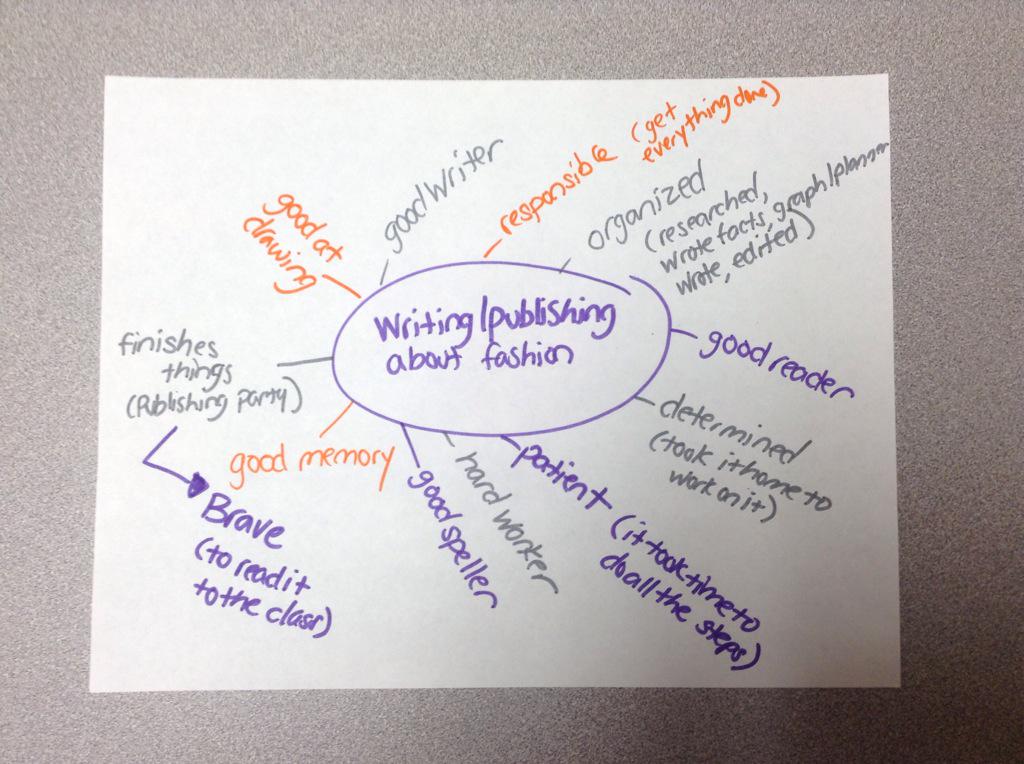 Writing/publishing
about fashion
good at
drawing
good writer
responsible (get
everything done)
organized
(researched,
wrote facts, graph/planner
wrote, edited)
good reader
determined
(took it home to
work on it)
patient (it took time to
do all the steps)
hard worker
good speller
good memory
finishes
things
(Publishing party)
Brave
(to read it
to the class)